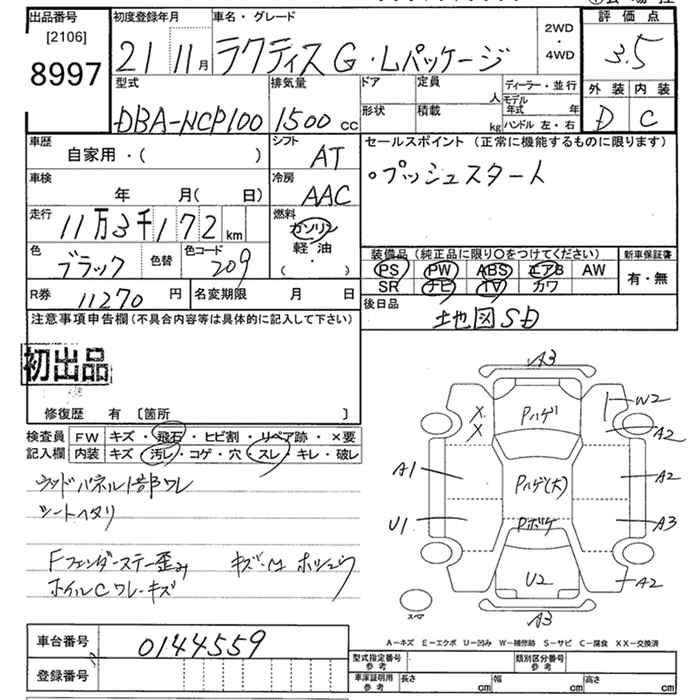 出品番号
[2106]
8997
初度登録年月
21 11月
車名・グレード
ラクティス G・Lパッケージ
2WD
・
4WD
評価点
3.5
外装 内装
D C
型式
DBA-NCP100
排気量
1500 cc
ドア
形状
定員
人
積載
kg
ディーラー・並行
モデル年式 年
ハンドル 左・右
車歴
自家用・( )
シフト
AT
車検
年 月( 日)
冷房
AAC
走行
11万3千172km
燃料
ガソリン
軽油
・
( )
色
ブラック
色替
色コード
209
R券
11270円
名変期限 月 日
セールスポイント(正常に機能するものに限ります)
○プッシュスタート
装備品(純正品に限り○をつけてください)
PS PW ABS エアB AW
SR ナビ TV カワ
新車保証書
有・無
後日品
地図SD
注意事項申告欄(不具合内容等は具体的に記入して下さい)
初出品
修復歴 有 〔箇所 〕
検査員
記入欄
FW キズ・飛石・ヒビ割・リペア跡・×要
内装 キズ・汚レ・コゲ・穴・スレ・キレ・破レ
ウッドパネル1部ワレ
シートヘタリ
Fフェンダーステー歪み
ホイルCワレ・キズ
A3
Pハゲ
X
X
W2
A2
A1
Pハゲ(大)
A2
U1
Pボケ
A3
U2
A2
スペア
A3
A−キズ E−エクボ U−凹み W−補修跡 S−サビ C−腐食 XX−交換済
車台番号
0144559
登録番号
型式指定番号
参考
類別区分番号
参考
車庫証明用
参考
長さ cm
幅 cm
高さ cm